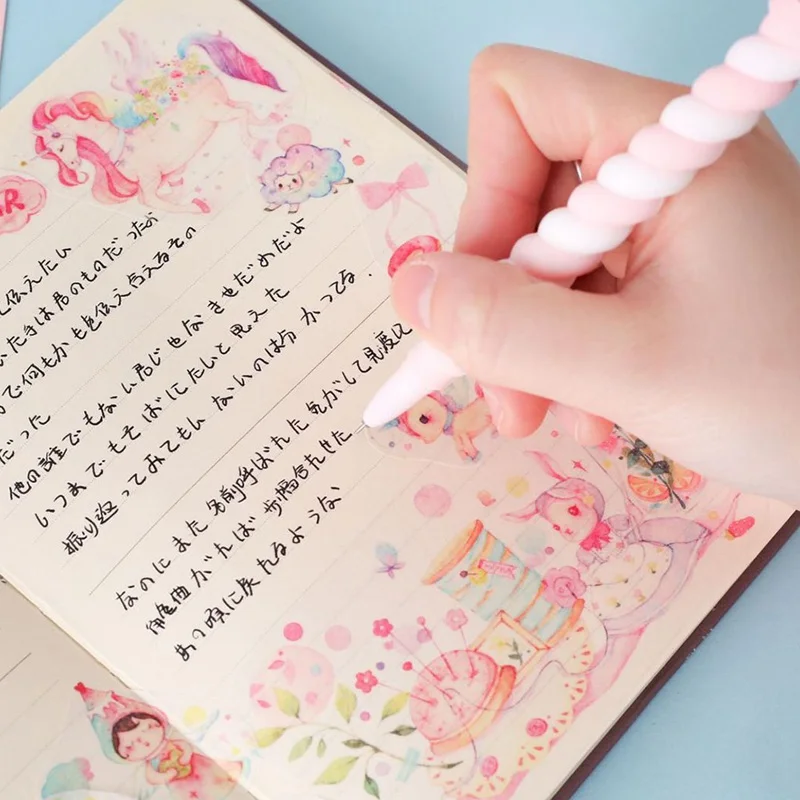 伝えたい
た手は君のものだったが
で何もかも伝え合えるその
だった
他の誰でもない君じゃなきゃだめだよ
いつまでもそばにいたいと思えた
振り返ってみてもいないのは分かってる.
なのにまた名前呼ばれた気がして見渡し
角曲がれば歩幅合わせた
あの頃に戻れるような